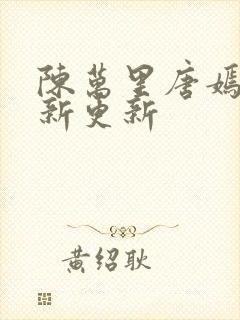 陳萬里唐嫣
新更新
黄绍耿